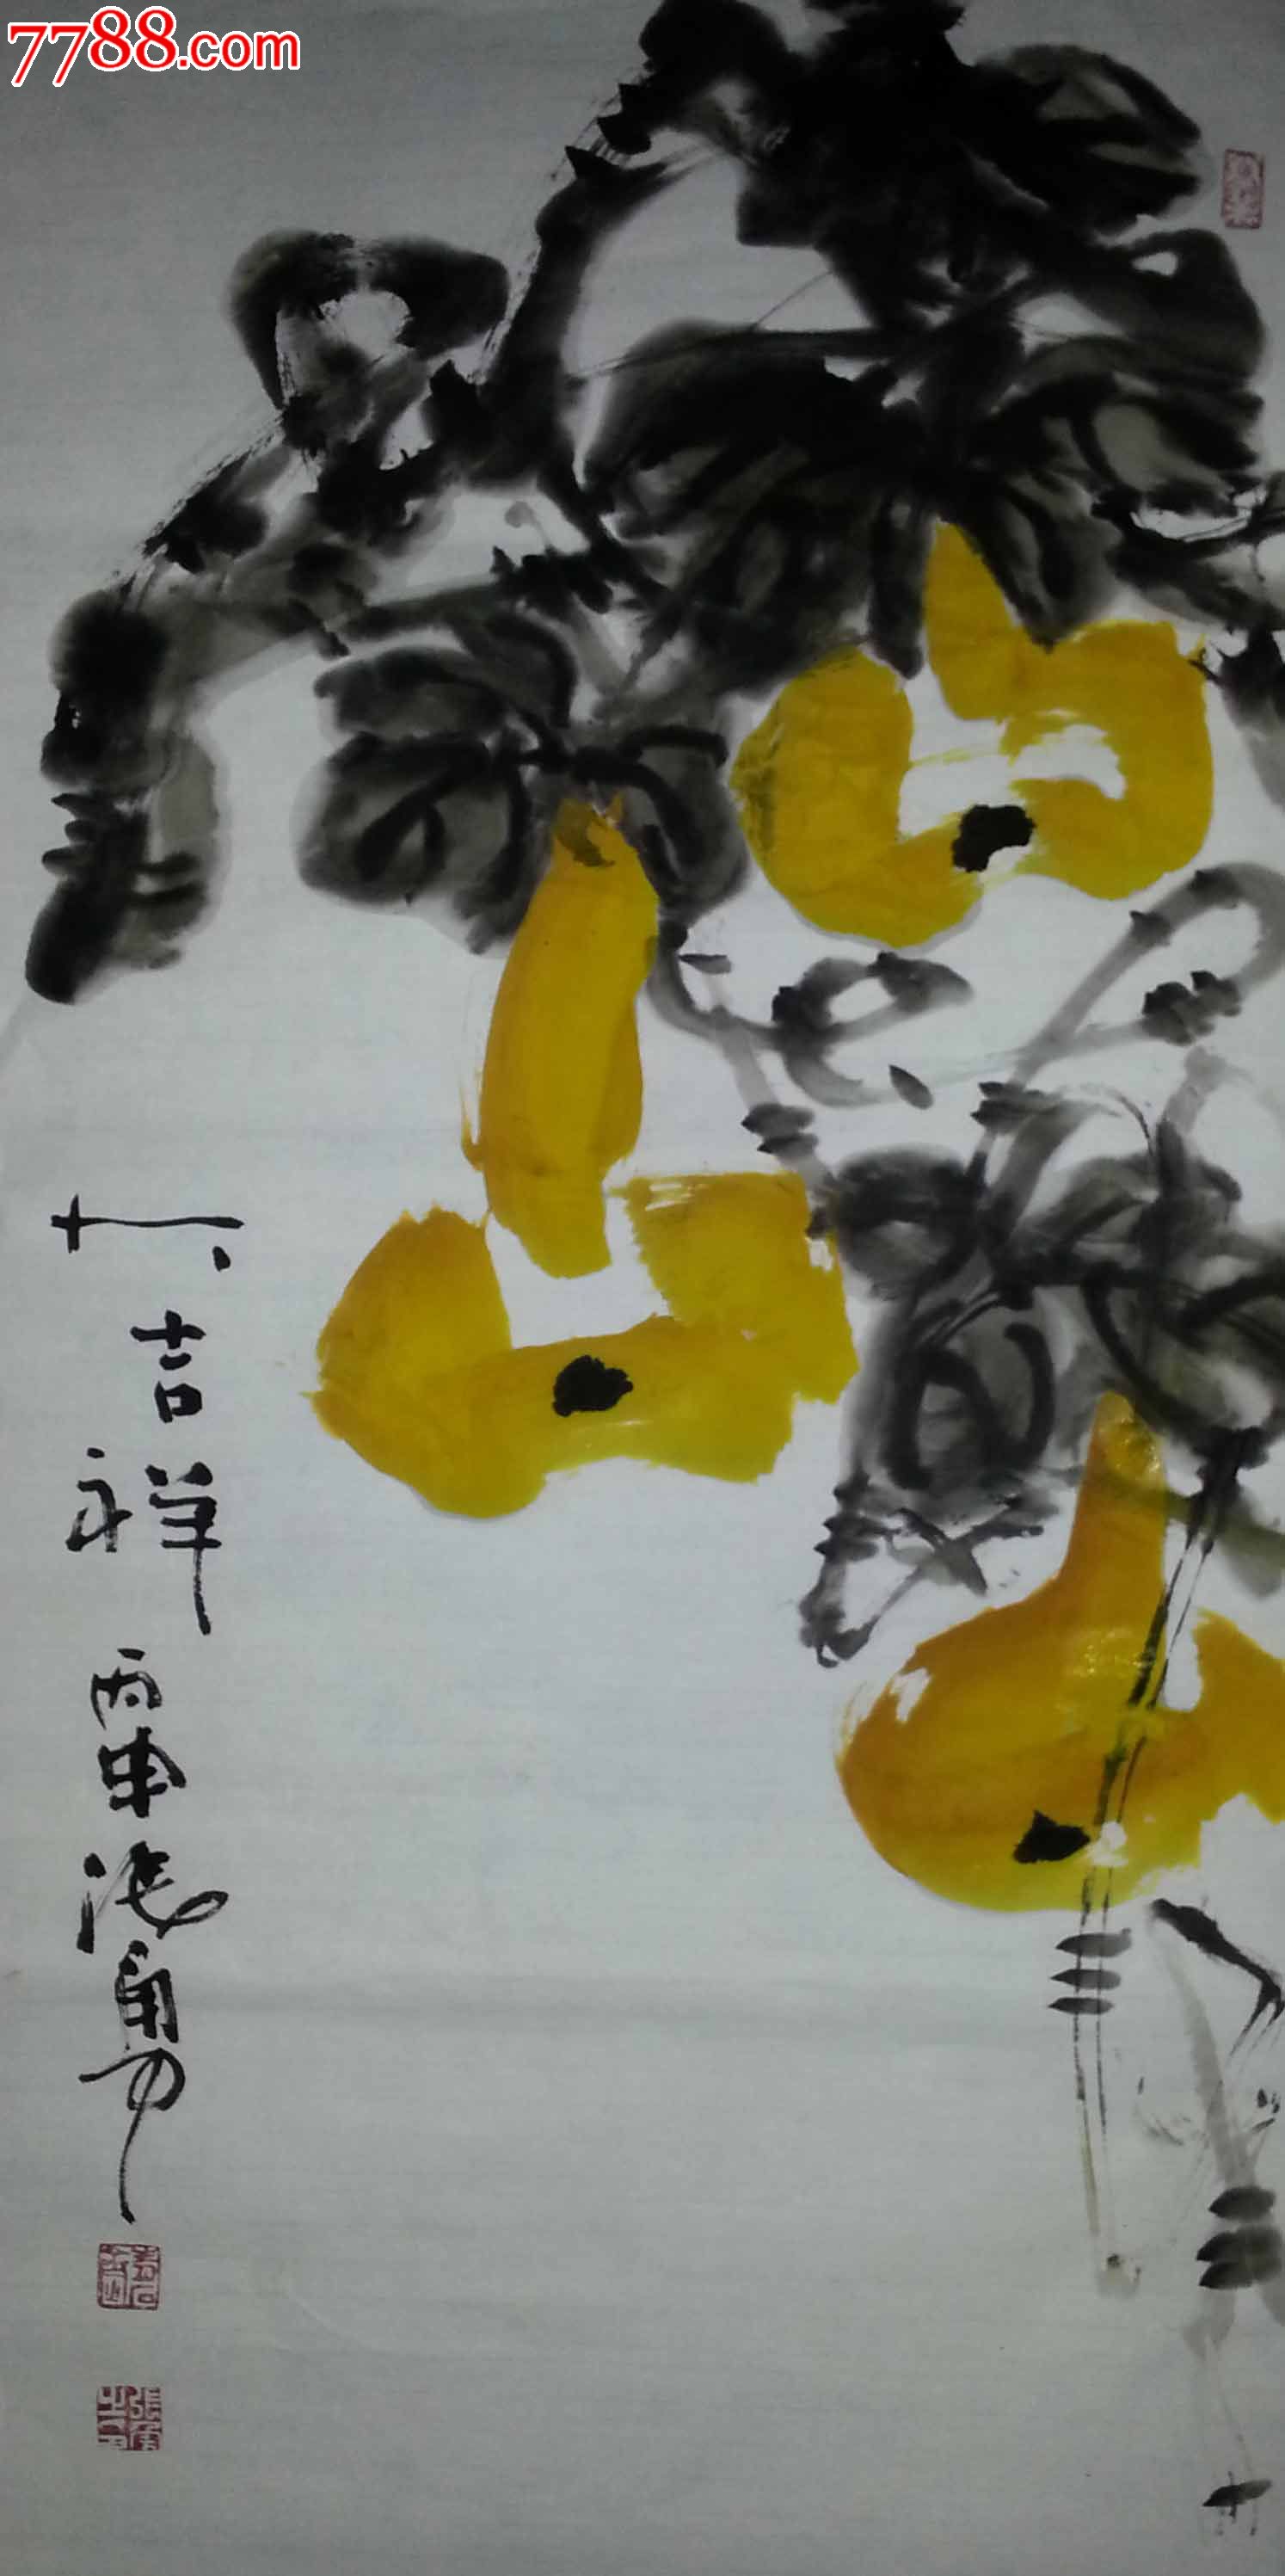 7788.com
大吉祥
丙申
张勇